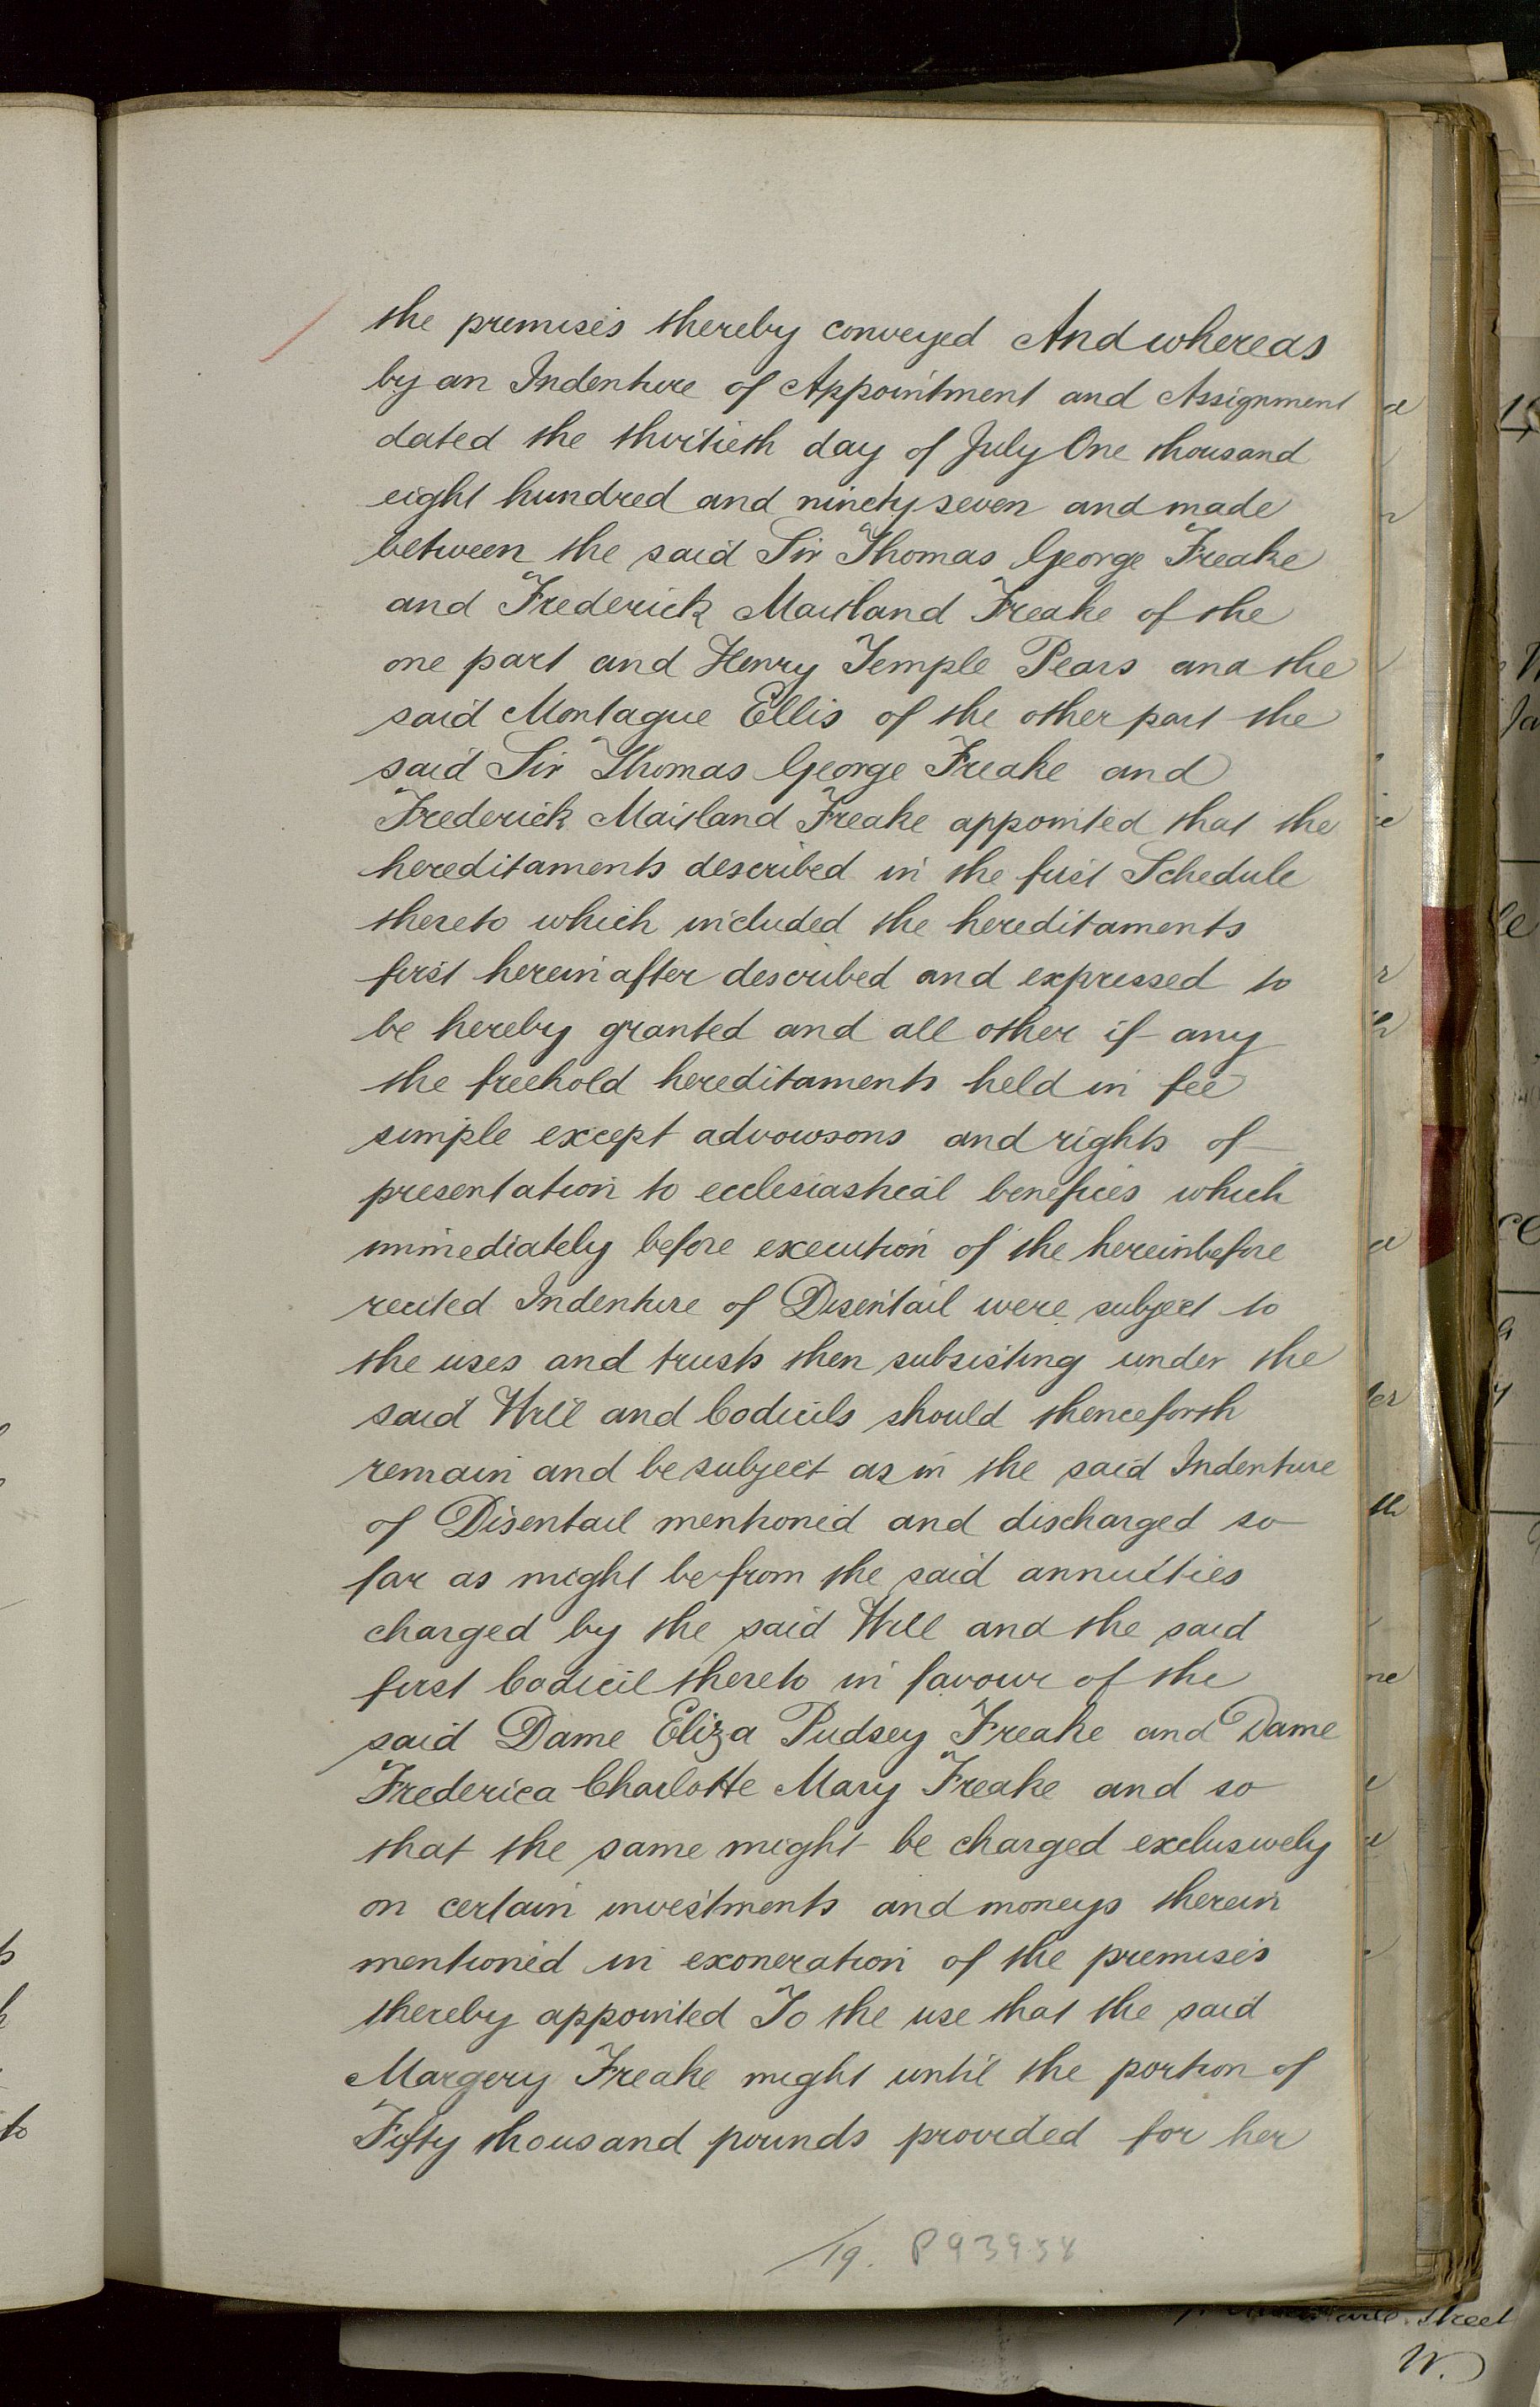 the premises thereby conveyed And whereas
by an Indenture of Appointment and Assignment
dated the thirtieth day of July One thousand
eight hundred and ninety seven and made
between the said Sir Thomas George Freake
and Frederick Maitland Freake of the
one part and Henry Temple Pears and the
said Montague Ellis of the other part the
said Sir Thomas George Freake and
Frederick Maitland Freake appointed that the
hereditaments described in the first Schedule
thereto which included the hereditaments
first hereinafter described and expressed to
be hereby granted and all other if any
the freehold hereditaments held in fee
simple except advowsons and rights of
presentation to ecclesiastical benefices which
immediately before execution of the hereinbefore
recited Indenture of Disentail were subject to
the uses and trusts then subsisting under the
said Will and Codicils should thenceforth
remain and be subject as in the said Indenture
of Disentail mentioned and discharged so
far as might be from the said annuities
charged by the said Will and the said
first Codicil thereto in favour of the
said Dame Eliza Pudsey Freake and Dame
Frederica Charlotte Mary Freake and so
that the same might be charged exclusively
on certain investments and moneys therein
mentioned in exoneration of the premises
thereby appointed To the use that the said
Margery Freake might until the portion of
Fifty thousand pounds provided for her
19. P93958
Street
W.
to